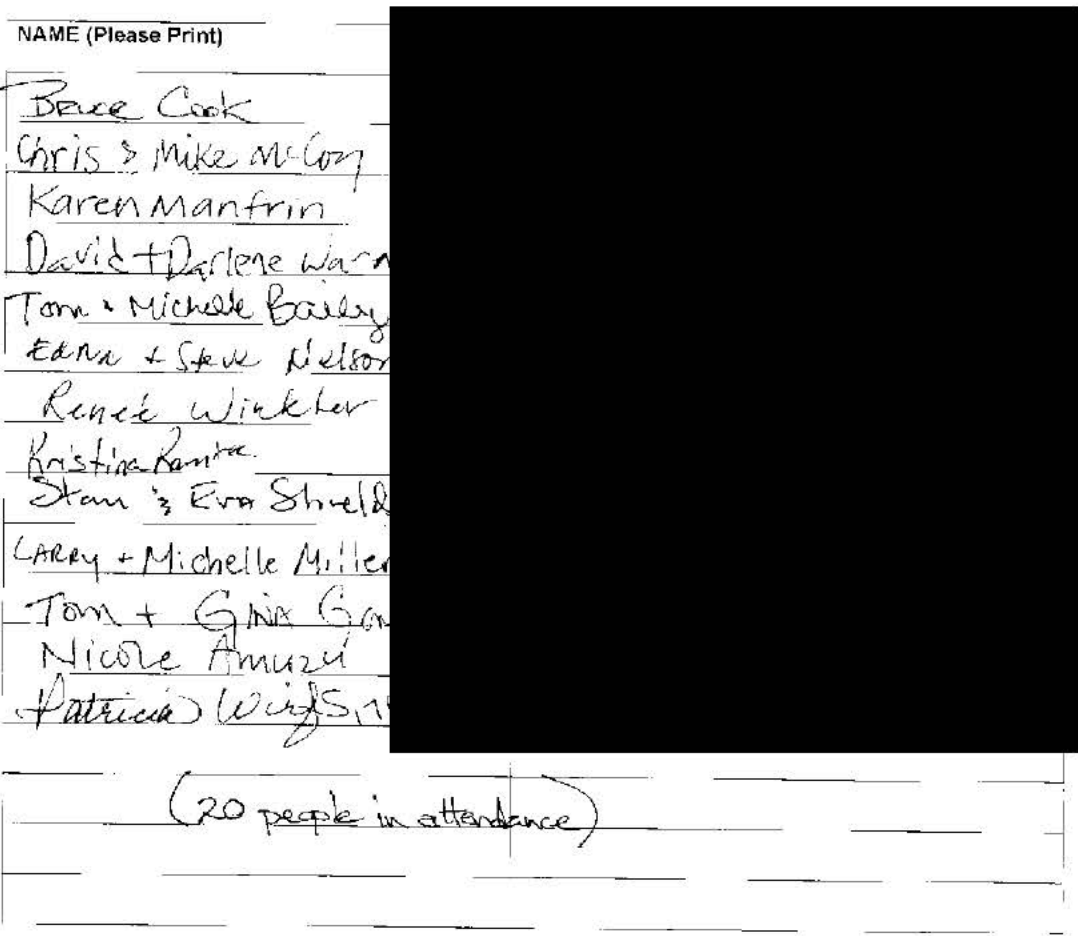 NAME (Please Print)
Bruce Cook
Chris & Mike McCoy
Karen Manfrin
David + Darlene Warn
Tom & Michelle Bailey
Edna + Steve Nielson
Reneé Winkler
Kristina
Stan & Eva Shield
LARRY + Michelle Miller
Tom + Gina
Nicole Amuzu
Patricia
(20 people in attendance)